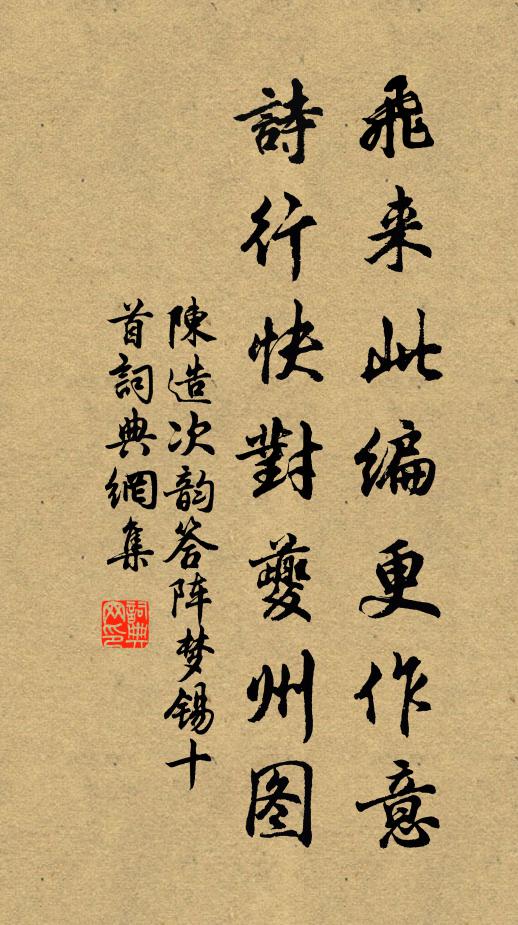 飛来此编更作意
詩行快對夔州图
陳造次韵答阵梦锡十
首詞典網集
詞典网印